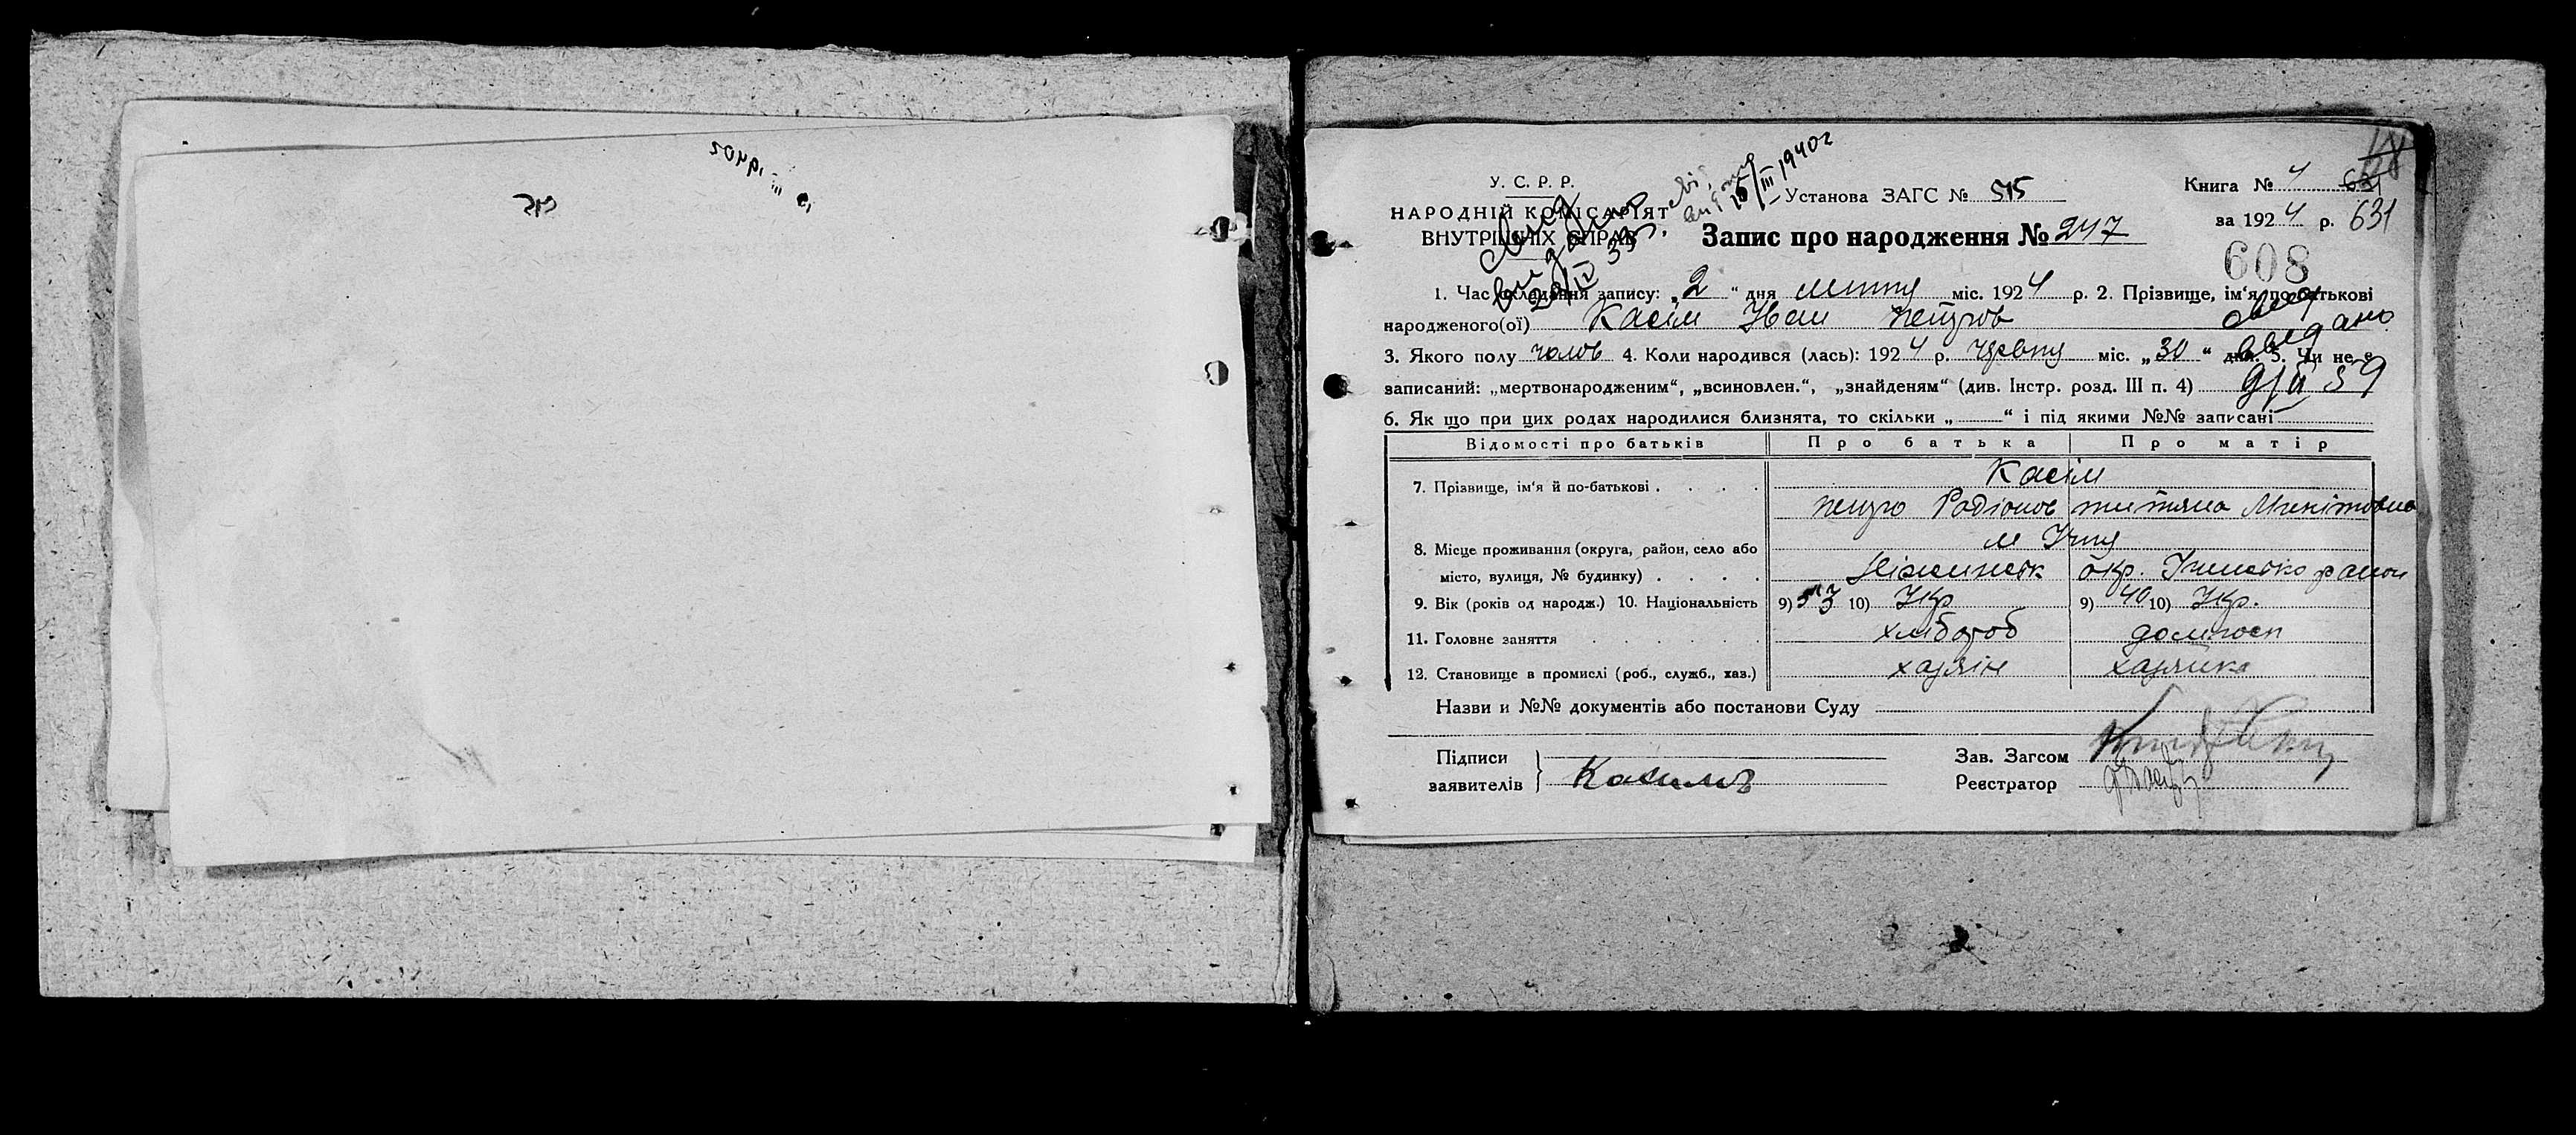 У. С. Р. Р.
НАРОДНІЙ КОМІСАРІЯТ
ВНУТРІШНІХ СПРАВ
15/III 1940 г
Установа ЗАГС № 515
Книга № 4
за 1924 р. 631
Запис про народження № 247
608
1. Час складання запису: „2“ дня липня міс. 1924 р. 2. Прізвище, ім‘я по-батькові
народженого(ої) Касім Іван Петров
3. Якого полу чолов 4. Коли народився (лась): 1924 р. червня міс. „30“ дня. 5. Чи не є
записаний: „мертвонародженим“, „всиновлен.“, „знайденям“ (див. Інстр. розд. III п. 4) 9/II 39
6. Як що при цих родах народилися близнята, то скільки „ “ і під якими №№ записані
Відомості про батьків Про батька Про матір
7. Прізвище, ім‘я й по-батькові . . . . Касім
Петро Родіонов Титяна Микитовна
8. Місце проживання (округа, район, село або м Ічня
місто, вулиця, № будинку) . . . . Ніжинськ окр. Ічнянсько район
9. Вік (років од народж.) 10. Національність 9) 53 10) Укр 9) 40 10) Укр.
11. Головне заняття . . . . . . хлібороб домгосп
12. Становище в промислі (роб., служб., хаз.) хазяін хазяйка
Назви и №№ документів або постанови Суду
Підписи
заявителів } Касимъ
Зав. Загсом
Реєстратор